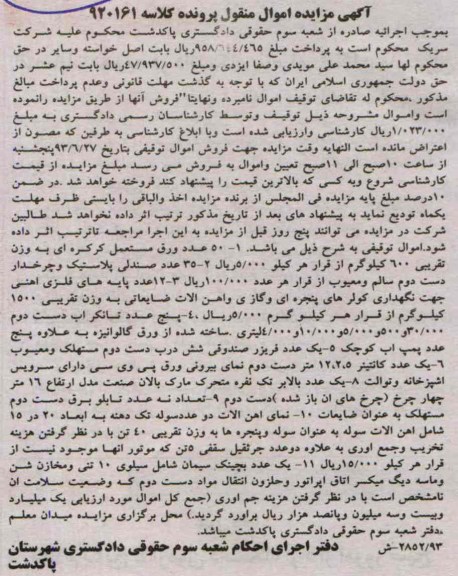 آگهی مزایده اموال منقول پرونده کلاسه ۹۲۰۱۶۱
بموجب اجرائیه صادره از شعبه سوم حقوقی دادگستری پاکدشت محکوم علیه شرکت
سریک محکوم است به پرداخت مبلغ ۹۵۸/۶۴۴/۴۶۵ریال بابت اصل خواسته وسایر در حق
محکوم لها سید محمد علی مویدی وصفا ایزدی ومبلغ ۴۷/۹۳۷/۵۰۰ریال بابت نیم عشر در
حق دولت جمهوری اسلامی ایران که با توجه به گذشت مهلت قانونی وعدم پرداخت مبالغ
مذکور .محکوم له تقاضای توقیف اموال نامبرده ونهایتا"فروش آنها از طریق مزایده رانموده
است واموال مشروحه ذیل توقیف وتوسط کارشناسان رسمی دادگستری به مبلغ
۱/۰۲۳/۰۰۰ریال کارشناسی وارزیابی شده است وبا ابلاغ کارشناسی به طرفین که مصون از
اعتراض مانده است التهایه وقت مزایده جهت فروش اموال توقیفی بتاریخ ۹۳/۶/۲۷پنجشنبه
از ساعت ۱۰صبح الی ۱۱صبح تعیین واموال به فروش می رسد مبلغ مزایده از قیمت
کارشناسی شروع وبه کسی که بالاترین قیمت را پیشنهاد کند فروخته خواهد شد .در ضمن
۱۰درصد مبلغ پایه مزایده فی المجلس از برنده مزایده اخذ والباقی را بایستی ظرف مهلت
یکماه تودیع نماید به پیشنهاد های بعد از تاریخ مذکور ترتیب اثر داده نخواهد شد طالبین
شرکت در مزایده می توانند پنج روز قبل از مزایده به این اجرا مراجعه تاترتیب اثر داده
شود.اموال توقیفی به شرح ذیل می باشد. ۱- ۵۰ عدد ورق مستعمل کرکره ای به وزن
تقریبی ۶۰۰ کیلوگرم از قرار هر کیلو ۵/۰۰۰ریال ۲-۳۵ عدد صندلی پلاستیک وچرخدار
دست دوم سالم ومعیوب از قرار هر عدد ۱۰۰/۰۰۰ریال ۳-۱۲عدد پایه های فلزی اهنی
جهت نگهداری کولر های پنجره ای وگاز ی واهن الات ضایعاتی به وزن تقریبی ۱۵۰۰
کیلوگرم از قرار هر کیلو گرم ۵/۰۰۰ریال .۴-پنج عدد تانکر اب دست دوم
۳۰/۰۰۰و۵۰۰و۵/۰۰۰و۱۰/۰۰۰و۴/۰۰۰لیتری .ساخته شده از ورق گالوانیزه به علاوه پنج
عدد پمپ اب کوچک ۵-یک عدد فریزر صندوقی شش درب دست دوم مستهلک ومعیوب
۶-یک عدد کانتینر ۱۲،۲،۵ متر دست دوم نمای بیرونی ورق پی وی سی دارای سرویس
اشپزخانه وتوالت ۸-یک عدد بالابر تک نفره متحرک مارک بالان صنعت مدل ارتفاع ۱۶ متر
چهار چرخ (چرخ های ان باز شده )دست دوم ۹-تعداد نه عدد تابلو برق دست دوم
مستهلک به عنوان ضایعات ۱۰- نمای اهن الات دو عددسوله تک دهنه به ابعاد ۲۰ در ۱۵
شامل اهن الات سوله به عنوان سوله وپنجره ها به وزن تقریبی ۴۰ تن با در نظر گرفتن هزینه
تخریب وجمع اوری به علاوه دوعدد جرثقیل سقفی ۵تن که موتور انها موجود نیست از
قرار هر کیلو ۱۵/۰۰۰ریال ۱۱- یک عدد بچینگ سیمان شامل سیلوی ۱۰ تنی ومخازن شن
وماسه دیگ میکسر اتاق اپراتور وحلزون انتقال مواد دست دوم که وضعیت سلامت ان
نامشخص است با در نظر گرفتن هزینه جم اوری (جمع کل اموال مورد ارزیابی یک میلیارد
وبیست وسه میلیون وپانصد هزار ریال براورد گردید.) محل برگزاری مزایده میدان معلم ،
.دفتر شعبه سوم حقوقی دادگستری پاکدشت میباشد.
۲۸۵۲/۹۳-ش دفتر اجرای احکام شعبه سوم حقوقی دادگستری شهرستان
پاکدشت